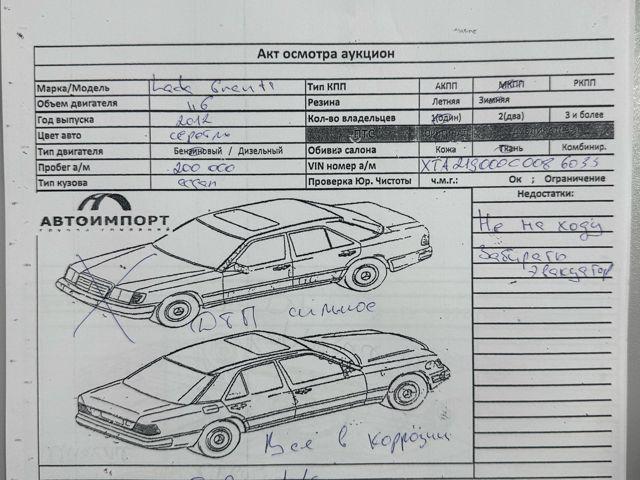 Акт осмотра аукцион
Марка/Модель Lada Granta Тип КПП АКПП МКПП РКПП
Объем двигателя 1,6 Резина Летняя Зимняя
Год выпуска 2012 Кол-во владельцев 1(один) 2(два) 3 и более
Цвет авто серебро ПТС
Тип двигателя Бензиновый / Дизельный Обивка салона Кожа Ткань Комбинир.
Пробег а/м 200 000 VIN номер а/м
Тип кузова седан Проверка Юр. Чистоты ч.м.г.: Ок ; Ограничение
Недостатки:
АВТОИМПОРТ
Не на ходу
Забирать
эвакуатор
ДТП сильное
Всё в коррозии